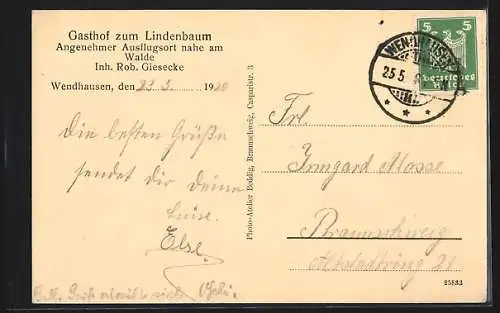 Gasthof zum Lindenbaum
Angenehmer Ausflugsort nahe am
Walde
Inh. Rob. Giesecke
Wendhausen, den 23.5. 1920
Die besten Grüße
sendet dir deine
Else.
Photo-Atelier Boddig, Braunschweig, Casparistr. 3
5 5
Deutsches
Reich
23.5
Frl.
Irmgard Mosse
Braunschweig
Altstadtring 21
25833